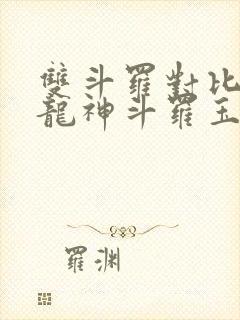 雙斗羅對比
龍神斗羅玉
羅渊